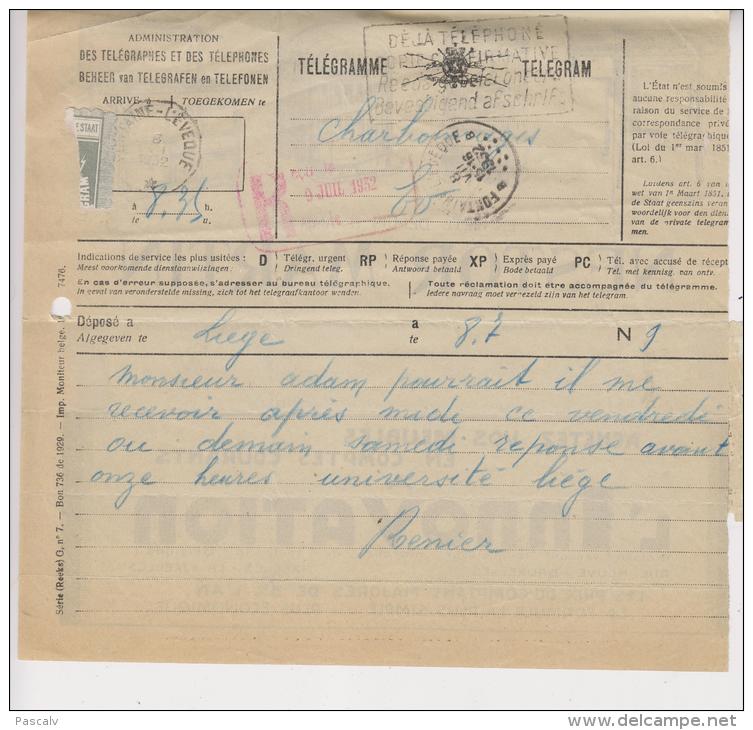 ADMINISTRATION
DES TÉLÉGRAPHES ET DES TÉLÉPHONES
BEHEER van TELEGRAFEN en TELEFONEN
ARRIVÉ à TOEGEKOMEN te
EVEQUE
1932
GRAM
à 8.35 h.
te u.
TÉLÉGRAMME TELEGRAM
DÉJÀ TÉLÉPHONÉ
Bevestigend afschrift
Charbonnages
9 JUIL 1932
L'État n'est soumis
aucune responsabilité
raison du service de
correspondance privée
par voie télégraphique
(Loi du 1er mars 1851
art. 6.)
Luidens art. 6 van
wet van 1n Maart 1851,
de Staat geenszins verant
woordelijk voor den dien
van de private telegram
men.
Indications de service les plus usitées : D Télégr. urgent RP Réponse payée XP Exprès payé PC Tél. avec accusé de récept
Meest voorkomende dienstaanwijzingen. Dringend teleg. Antwoord betaald Bode betaald Tel. met kennisg. van ontv.
En cas d'erreur supposée, s'adresser au bureau télégraphique. Toute réclamation doit être accompagnée du télégramme.
In geval van veronderstelde missing, zich tot het telegraafkantoor wenden. Iedere navraag moet vergezeld zijn van het telegram.
Déposé a Liege a 8.7 N 9
Afgegeven te te
monsieur adam pourrait il me
recevoir après midi ce vendredi
ou demain samedi reponse avant
onze heures université liége
Renier
Série (Reeks) G, n° 7. — Bon 736 de 1929. — Imp. Moniteur belge. 7476.
Pascalv
www.delcampe.net